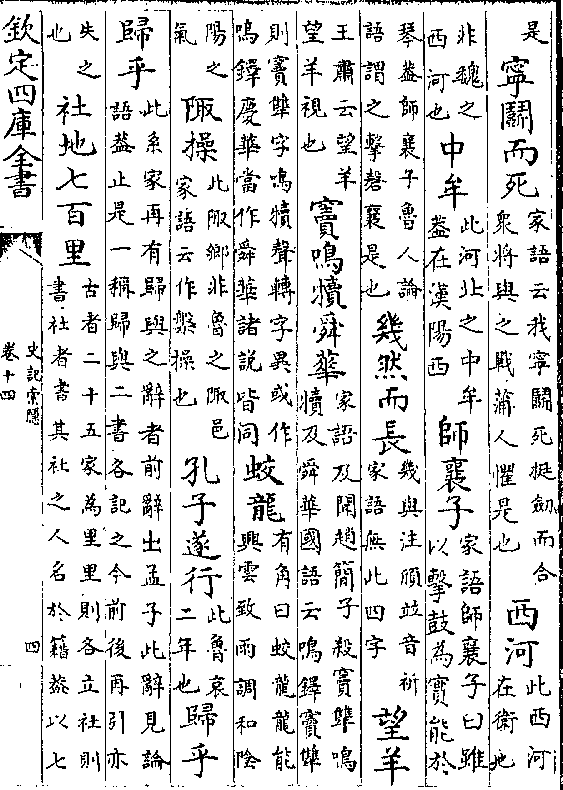 是寧鬬而死家語云我寧鬬死挺劒而合衆將與之戰蒲人懼是也西河此西河在衛地
非魏之西河也中牟此河北之中牟蓋在漢陽西師襄子家語師襄子曰雖以擊鼓為實能於
琴蓋師襄子魯人論語謂之擊磬襄是也幾然而長幾與注頎並音祈家語無此四字望羊
王肅云望羊望羊視也竇鳴犢舜華家語及聞趙簡子殺竇犨鳴犢及舜華國語云鳴鐸竇犨
則竇犨字鳴犢聲轉字異或作鳴鐸慶華當作舜華諸說皆同蛟龍有角曰蛟龍龍能興雲致雨調和陰
陽之氣陬操此陬鄉非魯之陬邑家語云作槃操也孔子遂行此魯哀二年也歸乎
歸乎此系家再有歸與之辭者前辭出孟子此辭見論語蓋止是一稱歸與二書各記之今前後再引亦
失之也社地七百里古者二十五家為里里則各立社則書社者書其社之人名於籍蓋以七
欽定四庫全書
史記索隱
卷十四
四